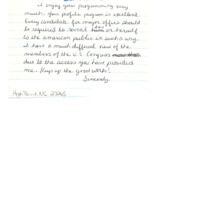 I enjoy your programming very
much. Your profile program is excellent.
Every candidate for major office should
be required to reveal him or herself
to the American public in such a way.
I have a much different view of the
members of the U.S. Congress
due to the access you have provided
me. Keep up the good work!
Sincerely,
High Point NC